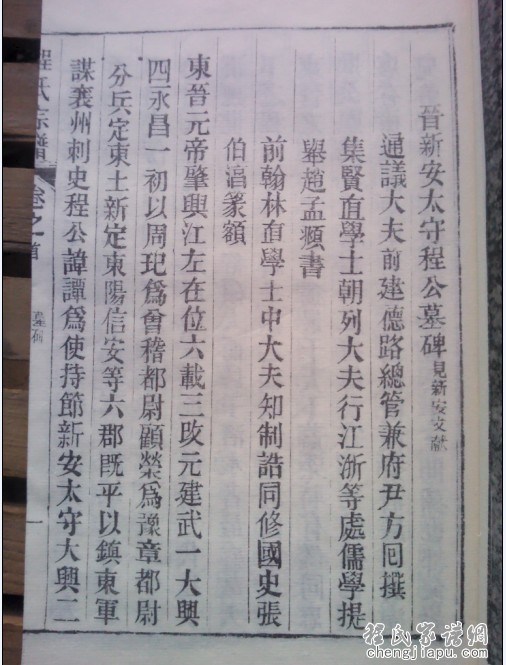 晉新安太守程公墓碑見新安文献
通議大夫前建德路總管兼府尹方囘撰
集賢直學士朝列大夫行江浙等處儒學提
舉趙孟頫書
前翰林直學士中大夫知制誥同修國史張
伯淳篆額
東晉元帝肇興江左在位六載三改元建武一大興
四永昌一初以周玘爲會稽都尉顧榮爲豫章都尉
分兵定東土新定東陽信安等六郡既平以鎮東軍
謀襄州刺史程公諱譚爲使持節新安太守大興二
程氏宗譜 卷之首
一
程氏家譜網
chengjiapu.com